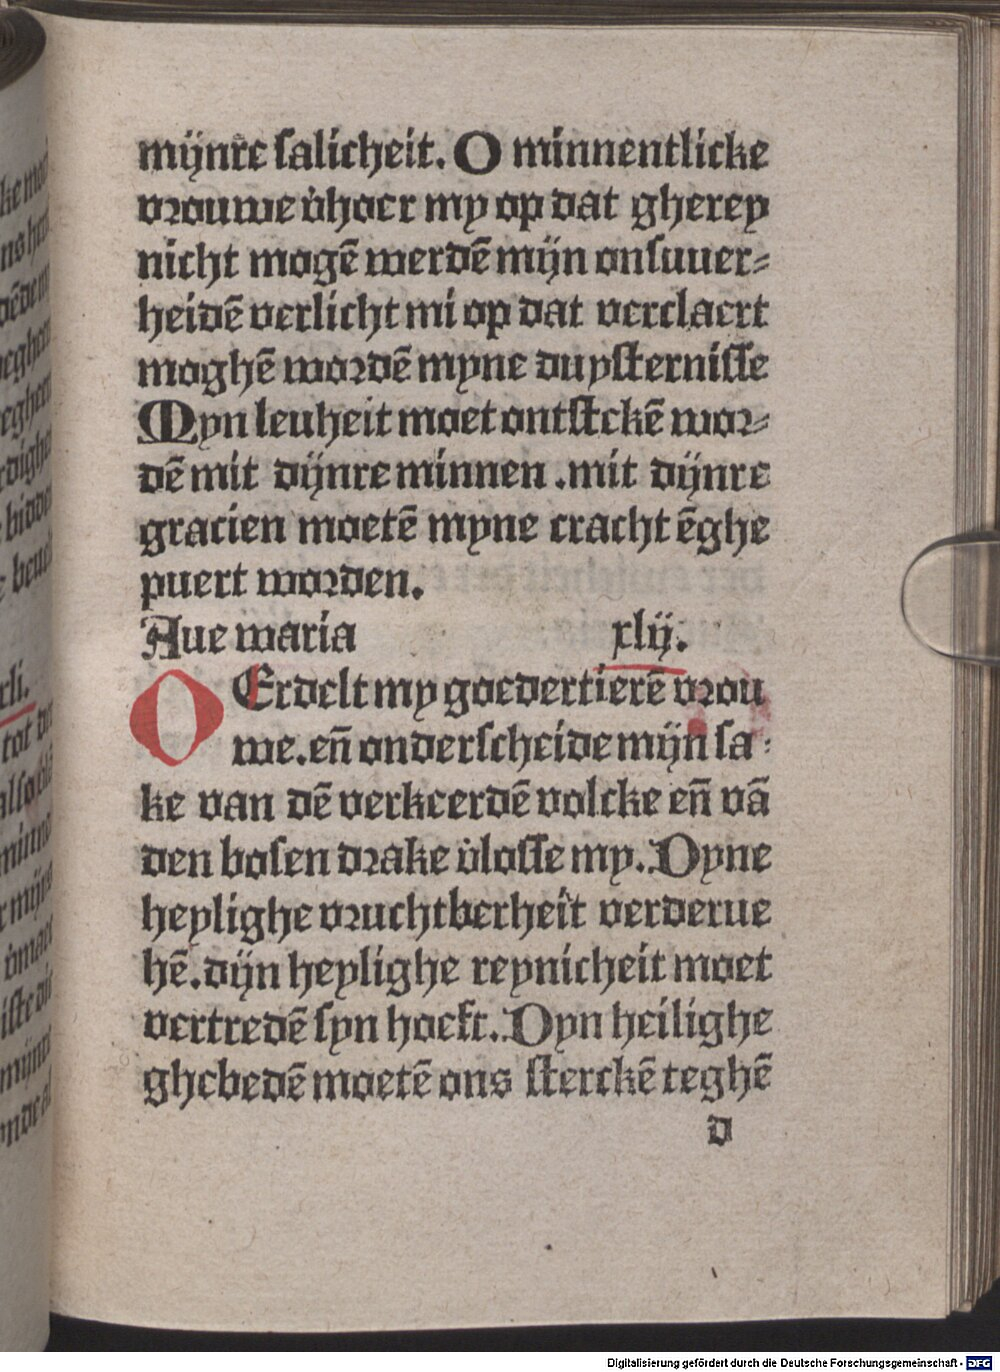 mijnre salicheit. O minnentlicke
vrouwe v̾hoer my op dat gherey
nicht mogē werdē mijn onsuuer⸗
heidē verlicht mi op dat verclaert
moghē wordē myne duysternisse
Myn leuheit moet ontstekē wor⸗
dē mit dijnre minnen .mit dijnre
gracien moetē myne cracht ēghe
puert worden.
Aue maria xlij.
O Erdelt my goedertierē vrou
we.en̄ onderscheide mijn sa⸗
ke van dē verkeerdē volcke en̄ vā
den bosen drake v̾losse my. Dyne
heylighe vruchtberheit verderue
hē.dijn heylighe reynicheit moet
vertredē syn hoeft. Dyn heilighe
ghebedē moetē ons sterckē teghē
d
Digitalisierung gefördert durch die Deutsche Forschungsgemeinschaft - DFG